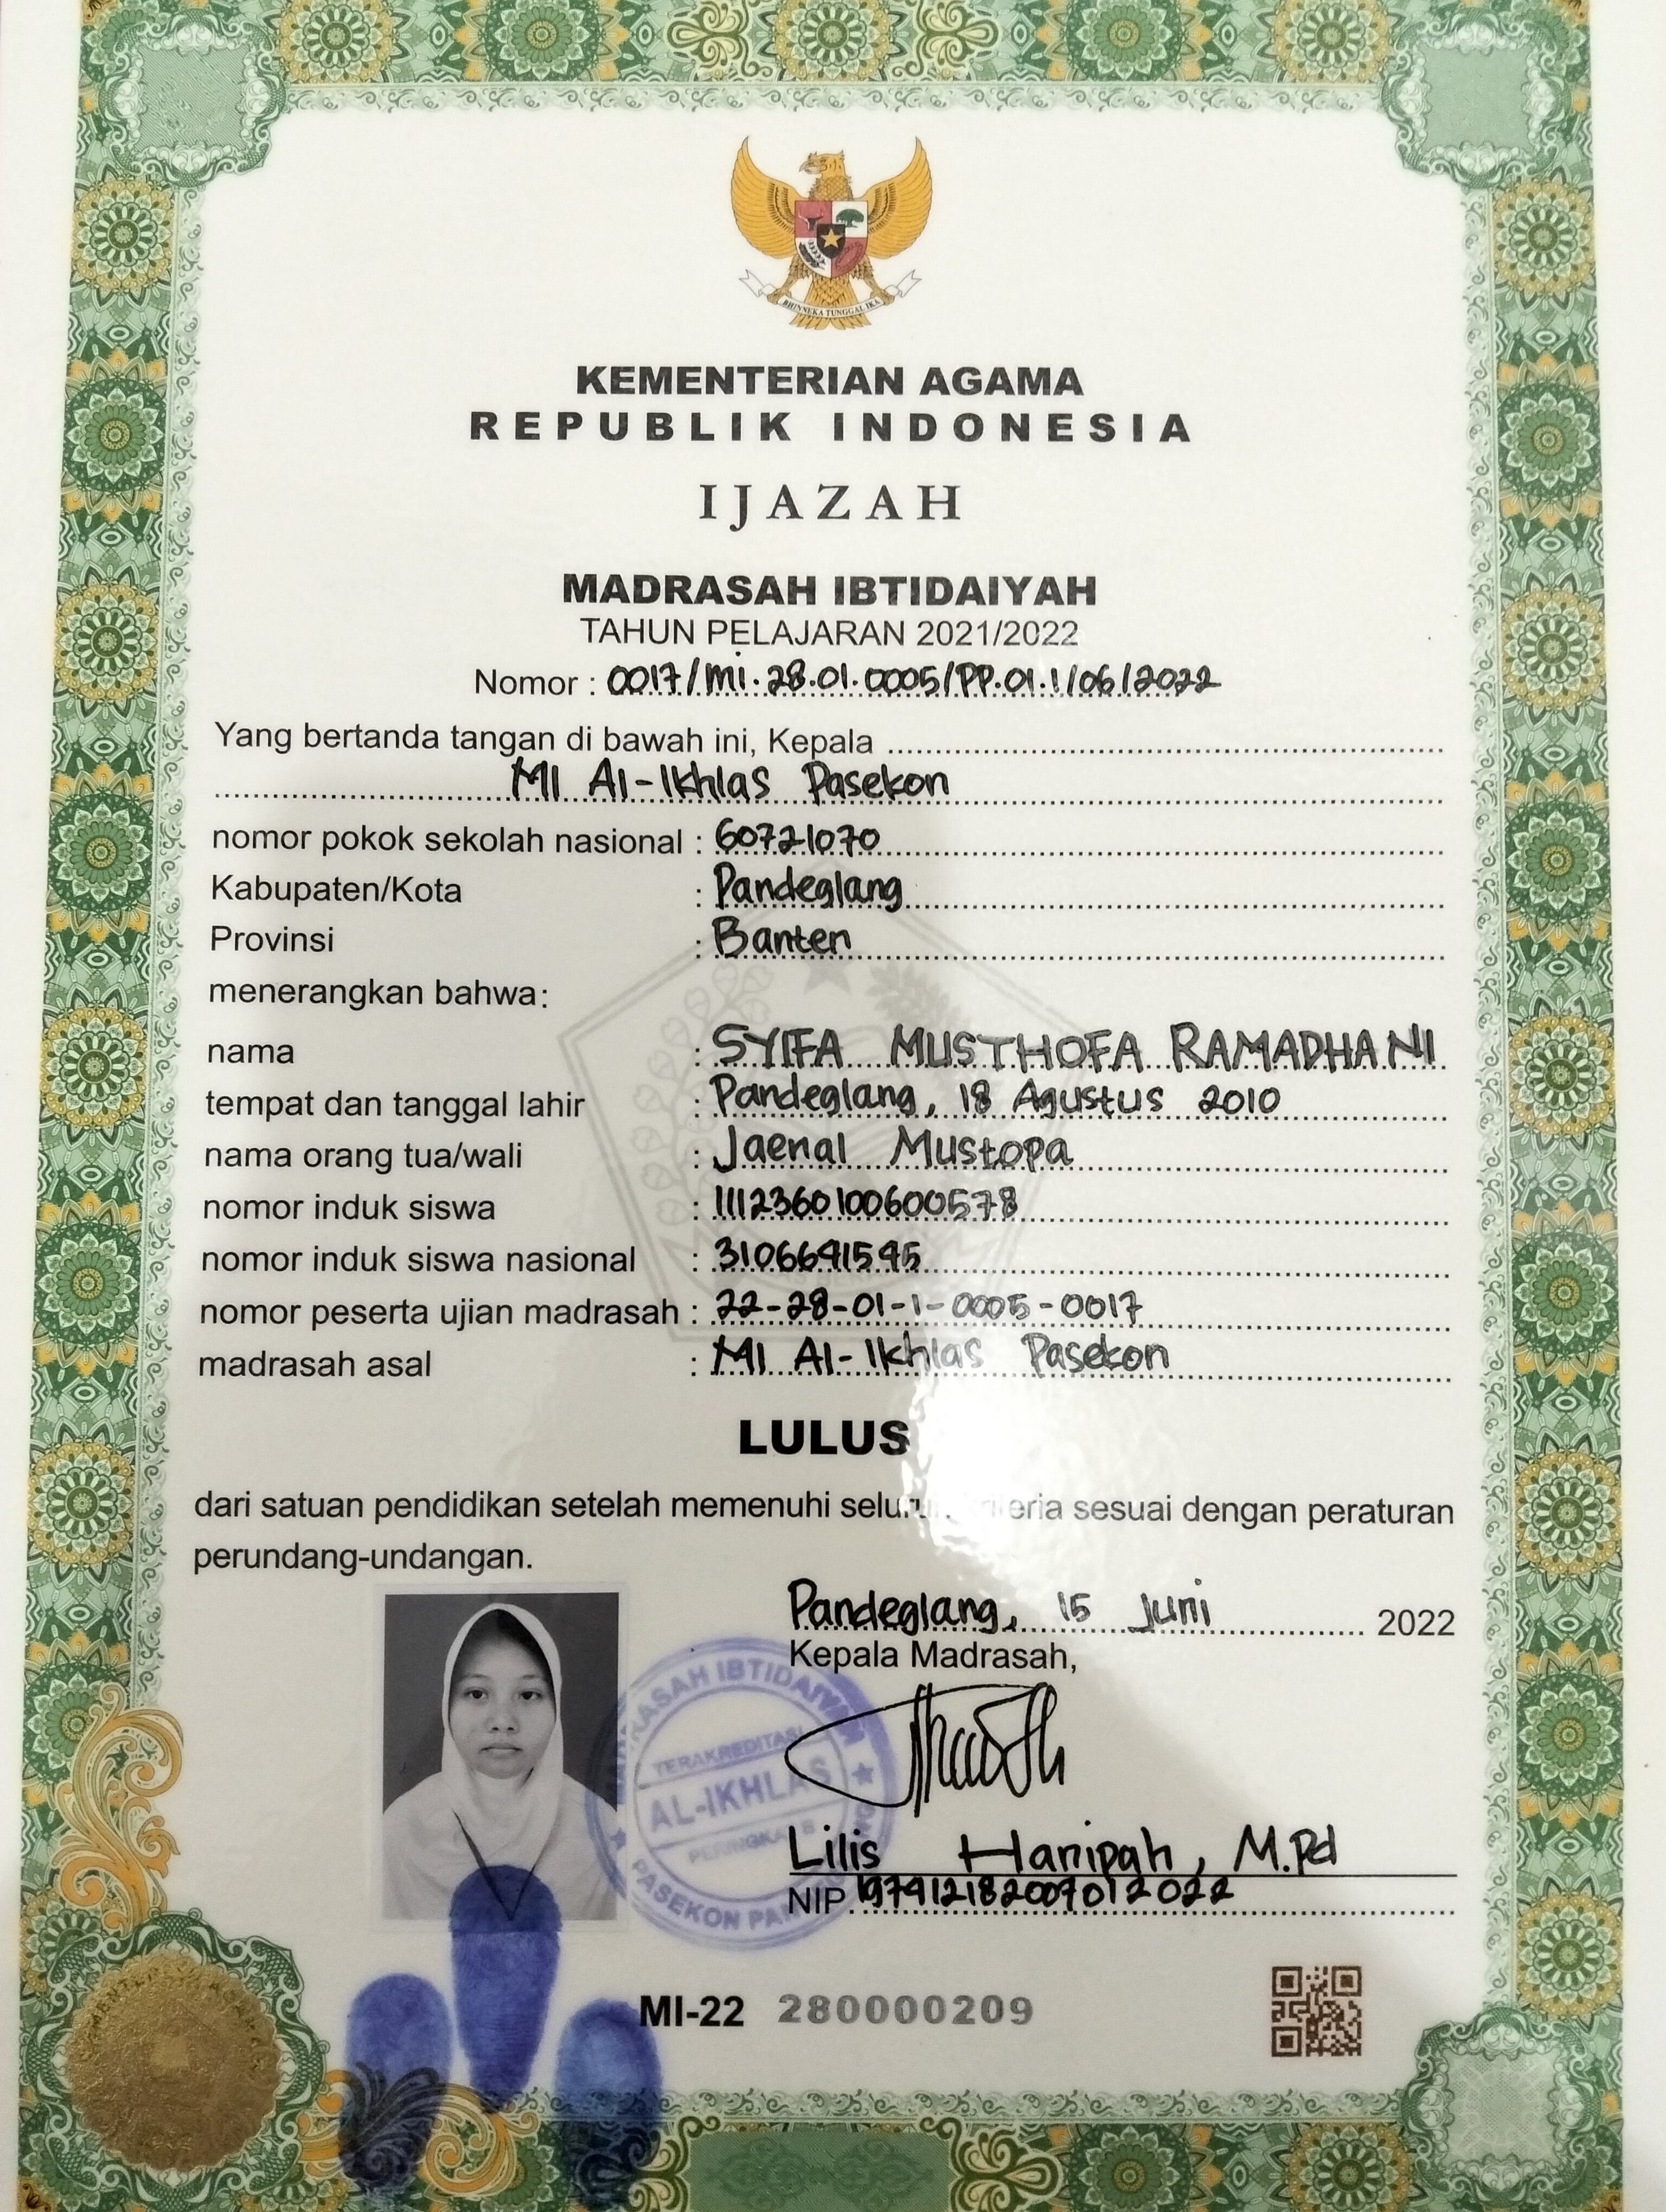 BHINNEKA TUNGGAL IKA
KEMENTERIAN AGAMA
REPUBLIK INDONESIA
IJAZAH
MADRASAH IBTIDAIYAH
TAHUN PELAJARAN 2021/2022
Nomor : 0017/Mi.28.01.0005/PP.01.1/06/2022
Yang bertanda tangan di bawah ini, Kepala
MI Al-Ikhlas Pasekon
nomor pokok sekolah nasional : 60721070
Kabupaten/Kota : Pandeglang
Provinsi : Banten
menerangkan bahwa:
nama : SYIFA MUSTHOFA RAMADHANI
tempat dan tanggal lahir : Pandeglang, 18 Agustus 2010
nama orang tua/wali : Jaenal Mustopa
nomor induk siswa : 1112360100600578
nomor induk siswa nasional : 3106691595
nomor peserta ujian madrasah : 22-28-01-1-0005-0017
madrasah asal : MI Al-Ikhlas Pasekon
LULUS
dari satuan pendidikan setelah memenuhi sesuai dengan peraturan
perundang-undangan.
Pandeglang, 15 Juni 2022
Kepala Madrasah,
MADRASAH IBTIDAIYAH
TERAKREDITASI
AL-IKHLAS
PERINGKAT B
PASEKON
Lilis Hanipah, M.Pd
NIP. 197912182007012022
MI-22 280000209